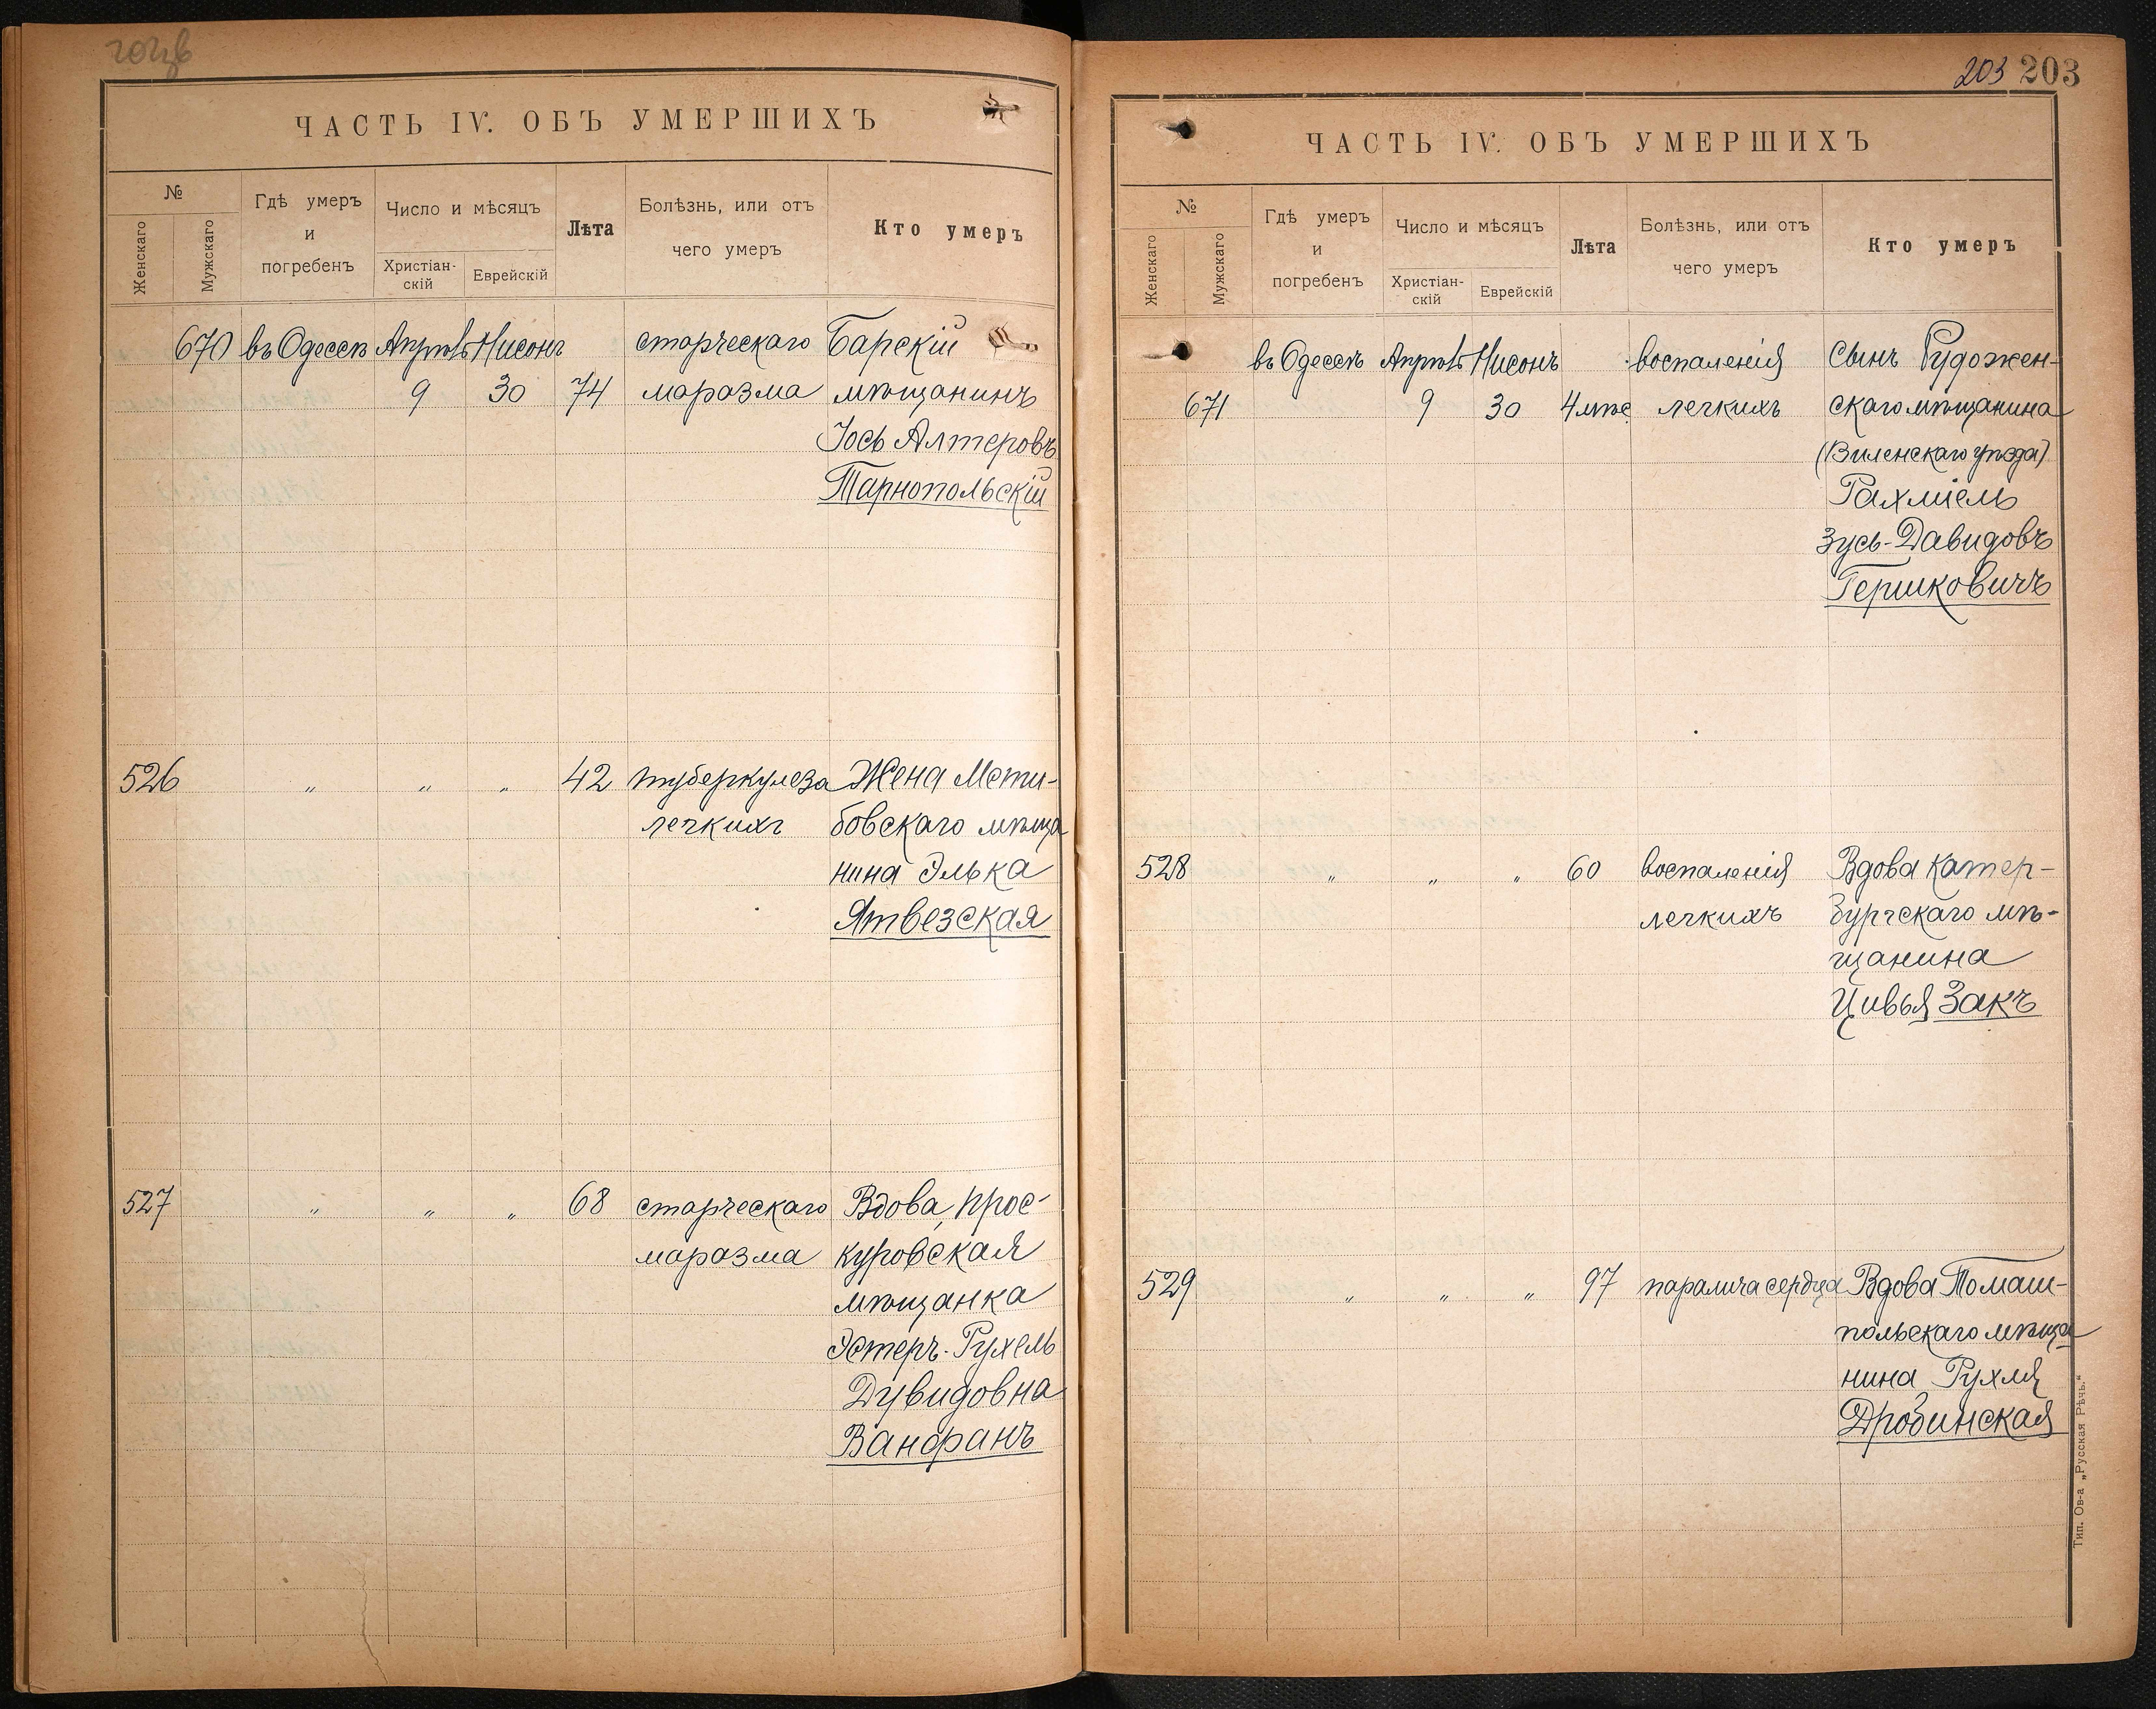 ЧАСТЬ IV. ОБЪ УМЕРШИХЪ
№
Женскаго
Мужскаго
Гдѣ умеръ
и
погребенъ
Число и мѣсяцъ
Христіан-
скій
Еврейскій
Лѣта
Болѣзнь, или отъ
чего умеръ
Кто умеръ
670 въ Одессѣ Апрѣль Нисонъ старческаго Барскій
9 30 74 маразма мѣщанинъ
Іось Алтеровъ
Тарнопольскій
526 „ „ „ 42 туберкулеза Жена Мсти-
легкихъ бовскаго мѣща
нина Элька
Ятвезская
527 „ „ „ 68 старческаго Вдова, прос-
маразма куровская
мѣщанка
Эстеръ-Рухель
Дувидовна
Ванфанъ
203 203
ЧАСТЬ IV. ОБЪ УМЕРШИХЪ
№
Женскаго
Мужскаго
Гдѣ умеръ
и
погребенъ
Число и мѣсяцъ
Христіан-
скій
Еврейскій
Лѣта
Болѣзнь, или отъ
чего умеръ
Кто умеръ
въ Одессѣ Апрѣль Нисонъ воспаленія Сынъ Рудожен-
671 9 30 4 мѣс. легкихъ скаго мѣщанина
(Виленскаго уѣзда)
Рахміель
Зусь-Давидовъ
Гершковичъ
528 „ „ „ 60 воспаленія Вдова Катер-
легкихъ бургскаго мѣ-
щанина
Цивья Закъ
529 „ „ „ 97 паралича сердца Вдова Томаш-
польскаго мѣща
нина Рухля
Дробинская
Тип. Ов-а „Русская Рѣчь."